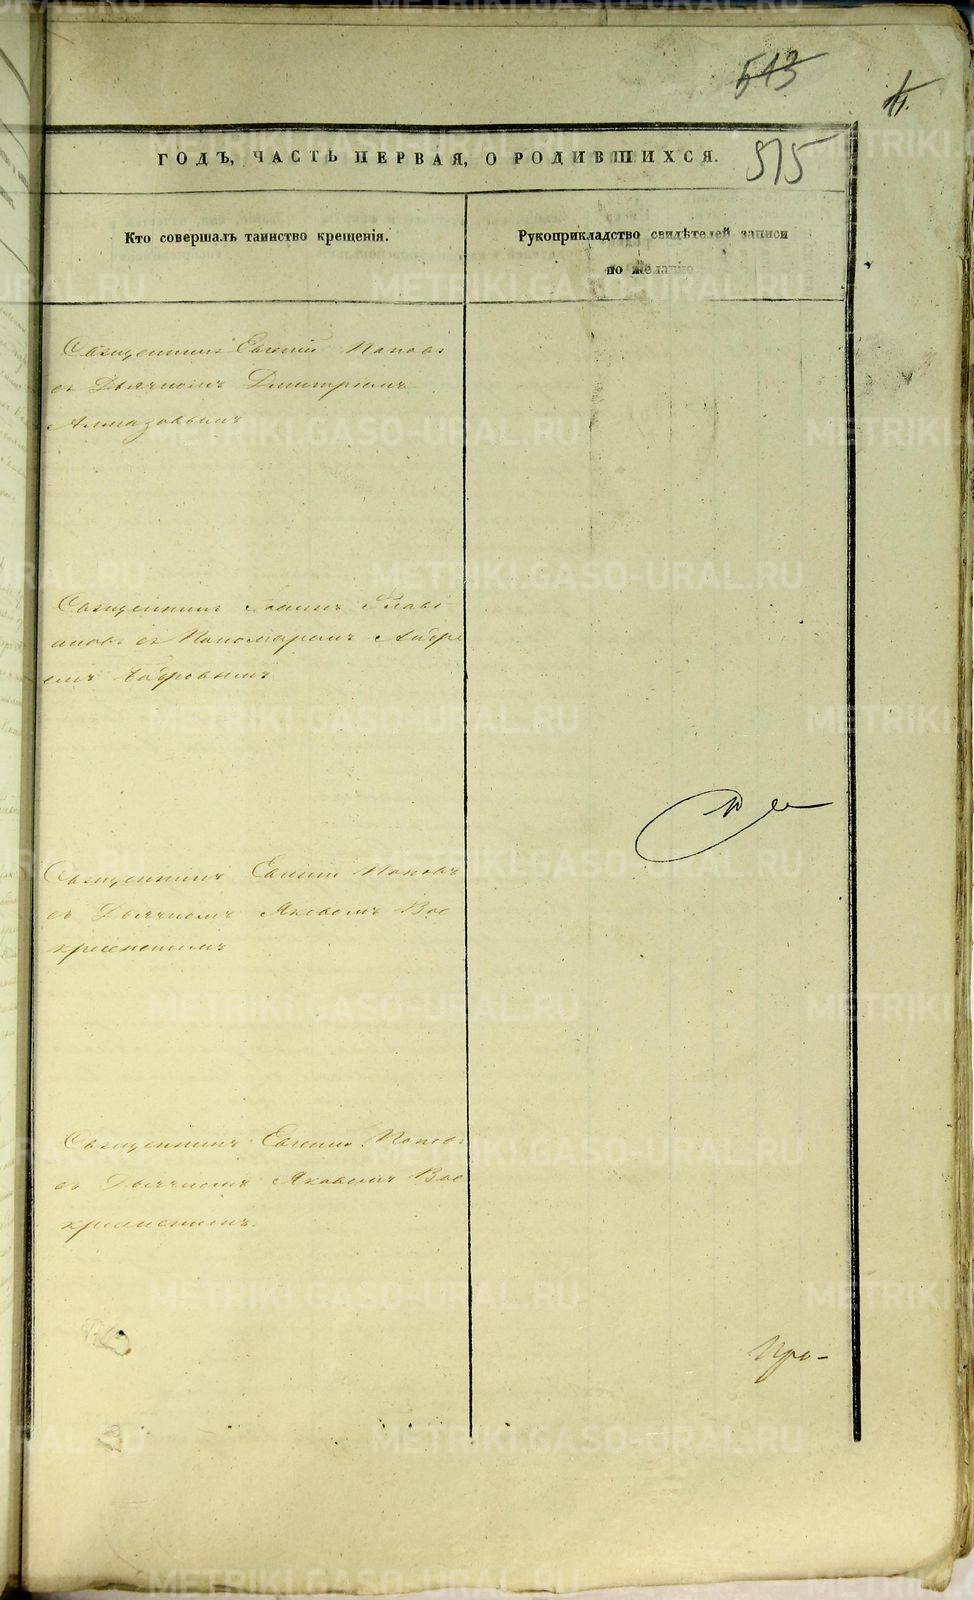 513
515
ГОДЪ, ЧАСТЬ ПЕРВАЯ, О РОДИВШИХСЯ.
Кто совершалъ таинство крещенія.
Рукоприкладство свидѣтелей записи
по желанію
Священникъ Евгеній Поповъ
съ Дьячкомъ Димитріемъ
Алмазовымъ
Священникъ Іоаннъ Флавіановъ
съ Пономаремъ Андре
емъ
Священникъ Евгеній Поповъ
съ Дьячкомъ Яковомъ Вос
кресенскимъ
Священникъ Евгеній Поповъ
съ Дьячкомъ Яковомъ Вос
кресенскимъ.
Про-
METRIKI.GASO-URAL.RU